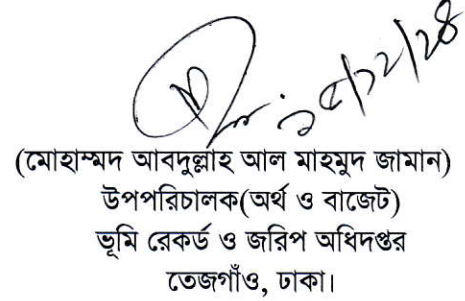 ১৫/১২/২৪
(মোহাম্মদ আবদুল্লাহ আল মাহমুদ জামান)
উপপরিচালক(অর্থ ও বাজেট)
ভূমি রেকর্ড ও জরিপ অধিদপ্তর
তেজগাঁও, ঢাকা।